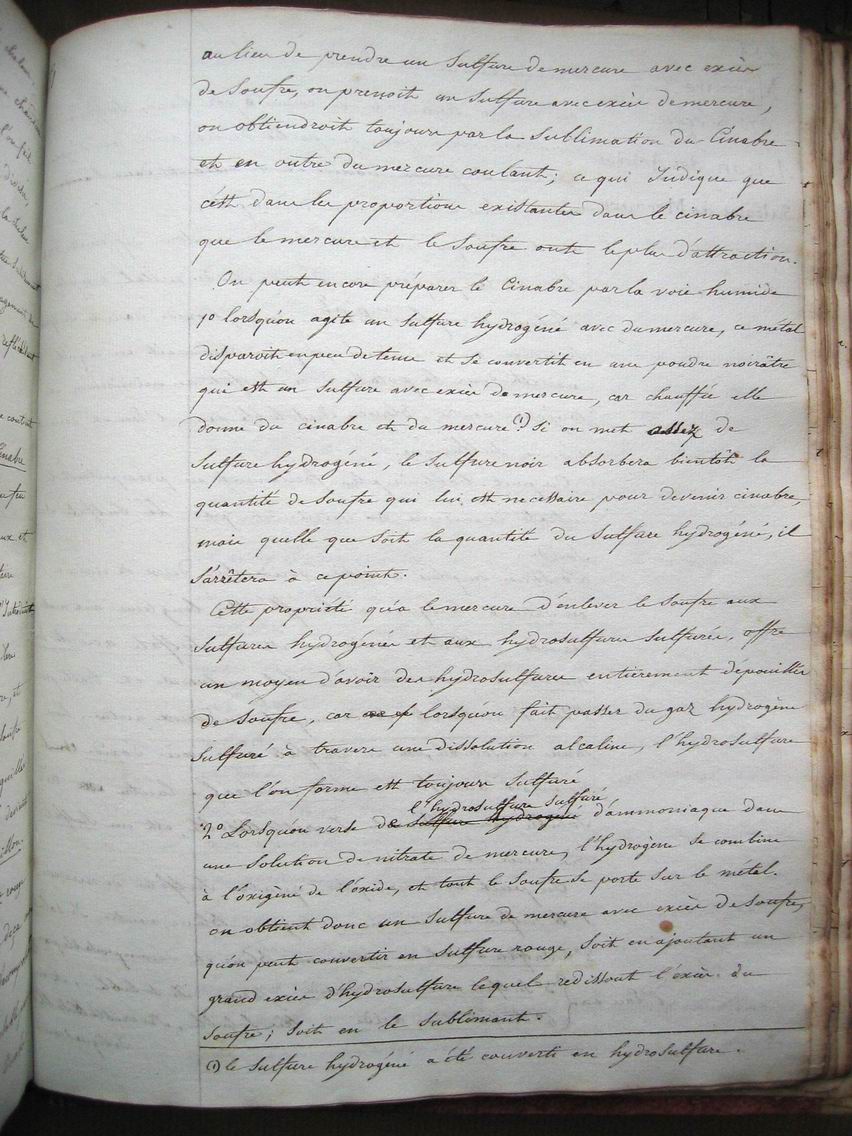 au lieu de prendre un Sulfure de mercure avec excès
de Soufre, on prenoit un Sulfure avec excès de mercure,
on obtiendroit toujours par la Sublimation du Cinabre
et en outre du mercure coulant; ce qui Indique que
c'est dans les proportions existantes dans le cinabre
que le mercure et le Soufre ont le plus d'attraction.
On peut encore préparer le Cinabre par la voie humide
1o lorsqu'on agite un Sulfure hydrogéné avec du mercure, ce métal
disparoit en peu de tems et se convertit en une poudre noirâtre
qui est un Sulfure avec excès de mercure, car chauffée elle
donne du cinabre et du mercure (1). Si on met assez de
Sulfure hydrogéné, le Sulfure noir absorbera bientôt la
quantité de Soufre qui lui est necessaire pour devenir cinabre,
mais quelle que soit la quantité du Sulfure hydrogéné, il
s'arrêtera à ce point.
Cette propriété qu'a le mercure d'enlever le Soufre aux
Sulfures hydrogénés et aux hydrosulfures Sulfurés, offre
un moyen d'avoir des hydrosulfures entièrement dépouillés
de Soufre, car lorsqu'on fait passer du gaz hydrogène
Sulfuré à travers une dissolution alcaline, l'hydrosulfure
que l'on forme est toujours Sulfuré
l'hydrosulfure Sulfuré
2o Lorsqu'on verse de Sulfure hydrogéné d'ammoniaque dans
une Solution de nitrate de mercure, l'hydrogène se combine
à l'oxigène de l'oxide, et tout le Soufre se porte sur le métal.
on obtient donc un Sulfure de mercure avec excès de Soufre,
qu'on peut convertir en Sulfure rouge, Soit en ajoutant un
grand excès d'hydrosulfure lequel redissout l'excès du
Soufre; Soit en le Sublimant.
(1) le Sulfure hydrogéné a été converti en hydrosulfure.